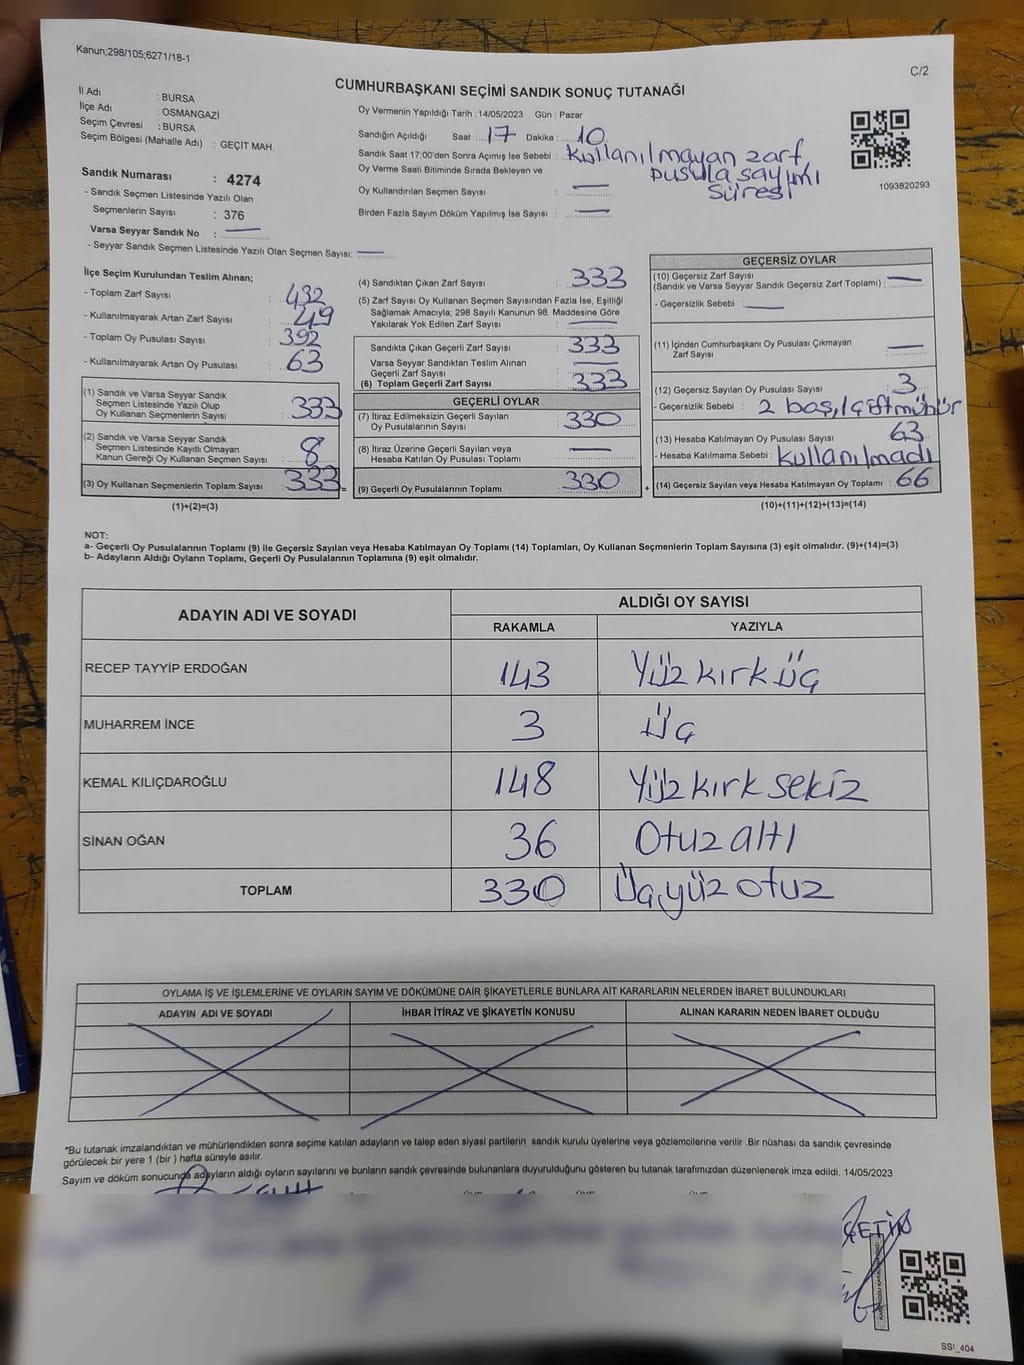 Kanun;298/105;6271/18-1
C/2
CUMHURBAŞKANI SEÇİMİ SANDIK SONUÇ TUTANAĞI
İl Adı : BURSA
İlçe Adı : OSMANGAZİ
Seçim Çevresi : BURSA
Seçim Bölgesi (Mahalle Adı) : GEÇİT MAH.
Oy Vermenin Yapıldığı Tarih : 14/05/2023 Gün : Pazar
Sandığın Açıldığı Saat : 17 Dakika : 10
Sandık Saat 17:00'den Sonra Açımış İse Sebebi : Kullanılmayan zarf,
pusula sayımı
süresi
Oy Verme Saati Bitiminde Sırada Bekleyen ve
Oy Kullandırılan Seçmen Sayısı :
Birden Fazla Sayım Döküm Yapılmış İse Sayısı :
1093820293
Sandık Numarası : 4274
- Sandık Seçmen Listesinde Yazılı Olan
Seçmenlerin Sayısı : 376
Varsa Seyyar Sandık No :
- Seyyar Sandık Seçmen Listesinde Yazılı Olan Seçmen Sayısı:
İlçe Seçim Kurulundan Teslim Alınan;
- Toplam Zarf Sayısı : 432
- Kullanılmayarak Artan Zarf Sayısı : 49
- Toplam Oy Pusulası Sayısı : 392
- Kullanılmayarak Artan Oy Pusulası : 63
(1) Sandık ve Varsa Seyyar Sandık
Seçmen Listesinde Yazılı Olup
Oy Kullanan Seçmenlerin Sayısı : 333
(2) Sandık ve Varsa Seyyar Sandık
Seçmen Listesinde Kayıtlı Olmayan
Kanun Gereği Oy Kullanan Seçmen Sayısı : 8
(3) Oy Kullanan Seçmenlerin Toplam Sayısı : 333 =
(1)+(2)=(3)
(4) Sandıktan Çıkan Zarf Sayısı : 333
(5) Zarf Sayısı Oy Kullanan Seçmen Sayısından Fazla İse, Eşitliği
Sağlamak Amacıyla; 298 Sayılı Kanunun 98. Maddesine Göre
Yakılarak Yok Edilen Zarf Sayısı :
Sandıkta Çıkan Geçerli Zarf Sayısı : 333
Varsa Seyyar Sandıktan Teslim Alınan
Geçerli Zarf Sayısı :
(6) Toplam Geçerli Zarf Sayısı : 333
GEÇERLİ OYLAR
(7) İtiraz Edilmeksizin Geçerli Sayılan
Oy Pusulalarının Sayısı : 330
(8) İtiraz Üzerine Geçerli Sayılan veya
Hesaba Katılan Oy Pusulası Toplamı :
(9) Geçerli Oy Pusulalarının Toplamı : 330 +
GEÇERSİZ OYLAR
(10) Geçersiz Zarf Sayısı
(Sandık ve Varsa Seyyar Sandık Geçersiz Zarf Toplamı) :
- Geçersizlik Sebebi :
(11) İçinden Cumhurbaşkanı Oy Pusulası Çıkmayan
Zarf Sayısı :
(12) Geçersiz Sayılan Oy Pusulası Sayısı : 3
- Geçersizlik Sebebi : 2 boş, 1 çift mühür
(13) Hesaba Katılmayan Oy Pusulası Sayısı : 63
- Hesaba Katılmama Sebebi : Kullanılmadı
(14) Geçersiz Sayılan veya Hesaba Katılmayan Oy Toplamı : 66
(10)+(11)+(12)+(13)=(14)
NOT:
a- Geçerli Oy Pusulalarının Toplamı (9) ile Geçersiz Sayılan veya Hesaba Katılmayan Oy Toplamı (14) Toplamları, Oy Kullanan Seçmenlerin Toplam Sayısına (3) eşit olmalıdır. (9)+(14)=(3)
b- Adayların Aldığı Oyların Toplamı, Geçerli Oy Pusulalarının Toplamına (9) eşit olmalıdır.
ADAYIN ADI VE SOYADI ALDIĞI OY SAYISI
RAKAMLA YAZIYLA
RECEP TAYYİP ERDOĞAN 143 Yüz kırk üç
MUHARREM İNCE 3 Üç
KEMAL KILIÇDAROĞLU 148 Yüz kırk sekiz
SİNAN OĞAN 36 Otuz altı
TOPLAM 330 Üç yüz otuz
OYLAMA İŞ VE İŞLEMLERİNE VE OYLARIN SAYIM VE DÖKÜMÜNE DAİR ŞİKAYETLERLE BUNLARA AİT KARARLARIN NELERDEN İBARET BULUNDUKLARI
ADAYIN ADI VE SOYADI İHBAR İTİRAZ VE ŞİKAYETİN KONUSU ALINAN KARARIN NEDEN İBARET OLDUĞU
*Bu tutanak imzalandıktan ve mühürlendikten sonra seçime katılan adayların ve talep eden siyasi partilerin sandık kurulu üyelerine veya gözlemcilerine verilir .Bir nüshası da sandık çevresinde
görülecek bir yere 1 (bir ) hafta süreyle asılır.
Sayım ve döküm sonucunda adayların aldığı oyların sayılarını ve bunların sandık çevresinde bulunanlara duyurulduğunu gösteren bu tutanak tarafımızdan düzenlenerek imza edildi. 14/05/2023
ÇETİN